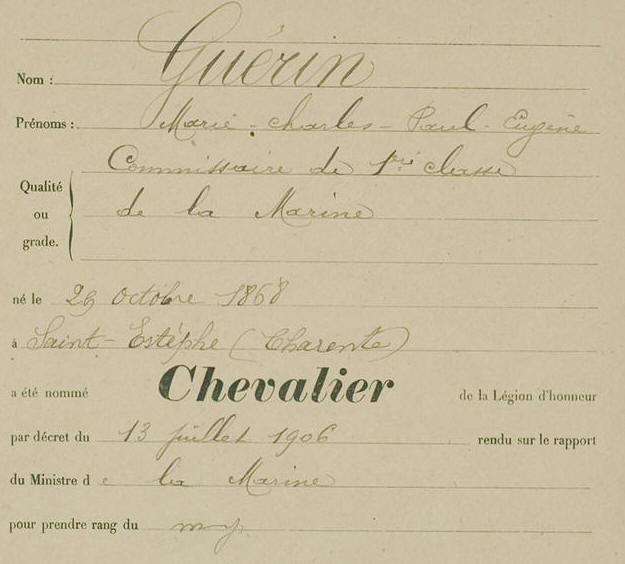 Nom : Guérin
Prénoms : Marie - Charles - Paul - Eugène
Commissaire de 1ère classe
Qualité ou grade. de la Marine
né le 29 octobre 1868
à Saint-Estèphe (Charente)
a été nommé Chevalier de la Légion d'honneur
par décret du 13 juillet 1906 rendu sur le rapport
du Ministre de la Marine
pour prendre rang du